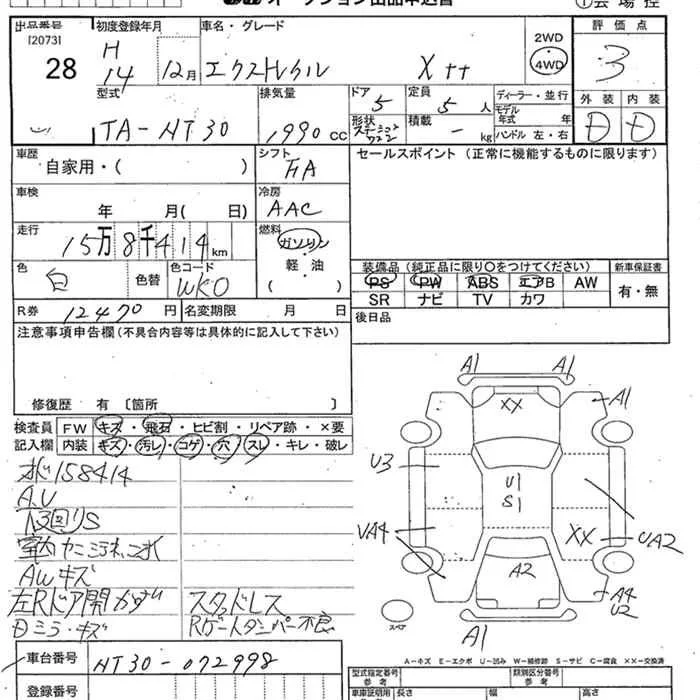 オークション出品申込書
①会場控
出品番号 初度登録年月 車名・グレード 評価点
12073I
28
H 14 12月 エクストレイル Xtt 2WD 4WD 3
型式 排気量 ドア 定員 ディーラー・並行 外装 内装
TA-NT30 1990 cc 5 5人 モデル年式 年 D D
形状 ステーションワゴン 積載 - kg ハンドル 左・右
車歴 シフト セールスポイント (正常に機能するものに限ります)
自家用・( ) FA
車検 冷房
年 月( 日) AAC
走行 燃料
15万8千414km ガソリン
・
軽・油
( )
色 白 色替 色コード WK0
装備品 (純正品に限り○をつけてください) 新車保証書
PS PW ABS エアB AW 有・無
SR ナビ TV カワ
R券 12470円 名変期限 月 日 後日品
注意事項申告欄 (不具合内容等は具体的に記入して下さい)
修復歴 有 〔箇所 〕
検査員 FW キズ・飛石・ヒビ割・リペア跡・×要
記入欄 内装 キズ・汚レ・コゲ・穴・スレ・キレ・破レ
メーター158414
A.U
下回りS
AWキズ
左Rドア開 スタッドレス
Dミラーキズ Rゲートダンパー不良
車台番号 NT30-072998
登録番号
A1 A1
XX A1
U3 U1
S1
UA4 XX UA2
A2 A4
U2
スペア A1
A-キズ E-エクボ U-凹み W-補修跡 S-サビ C-腐食 XX-交換済
型式指定番号 類別区分番号
参考 参考
車庫証明用 長さ 幅 高さ
参考